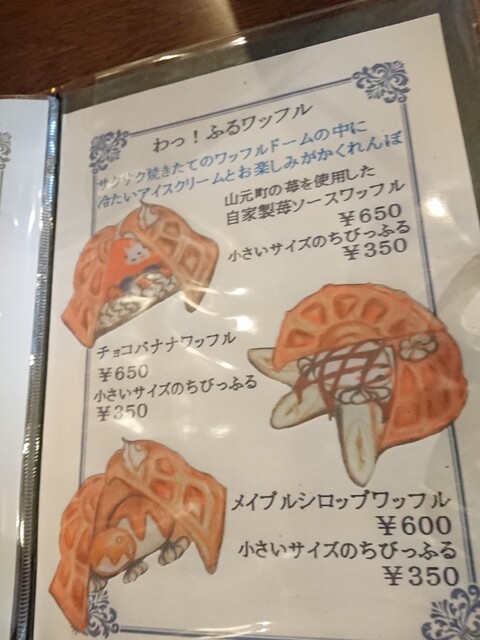 わっ！ふるワッフル
サクサク焼きたてのワッフルドームの中に
冷たいアイスクリームとお楽しみがかくれんぼ
山元町の苺を使用した
自家製苺ソースワッフル
￥650
小さいサイズのちびっふる
￥350
チョコバナナワッフル
￥650
小さいサイズのちびっふる
￥350
メイプルシロップワッフル
￥600
小さいサイズのちびっふる
￥350